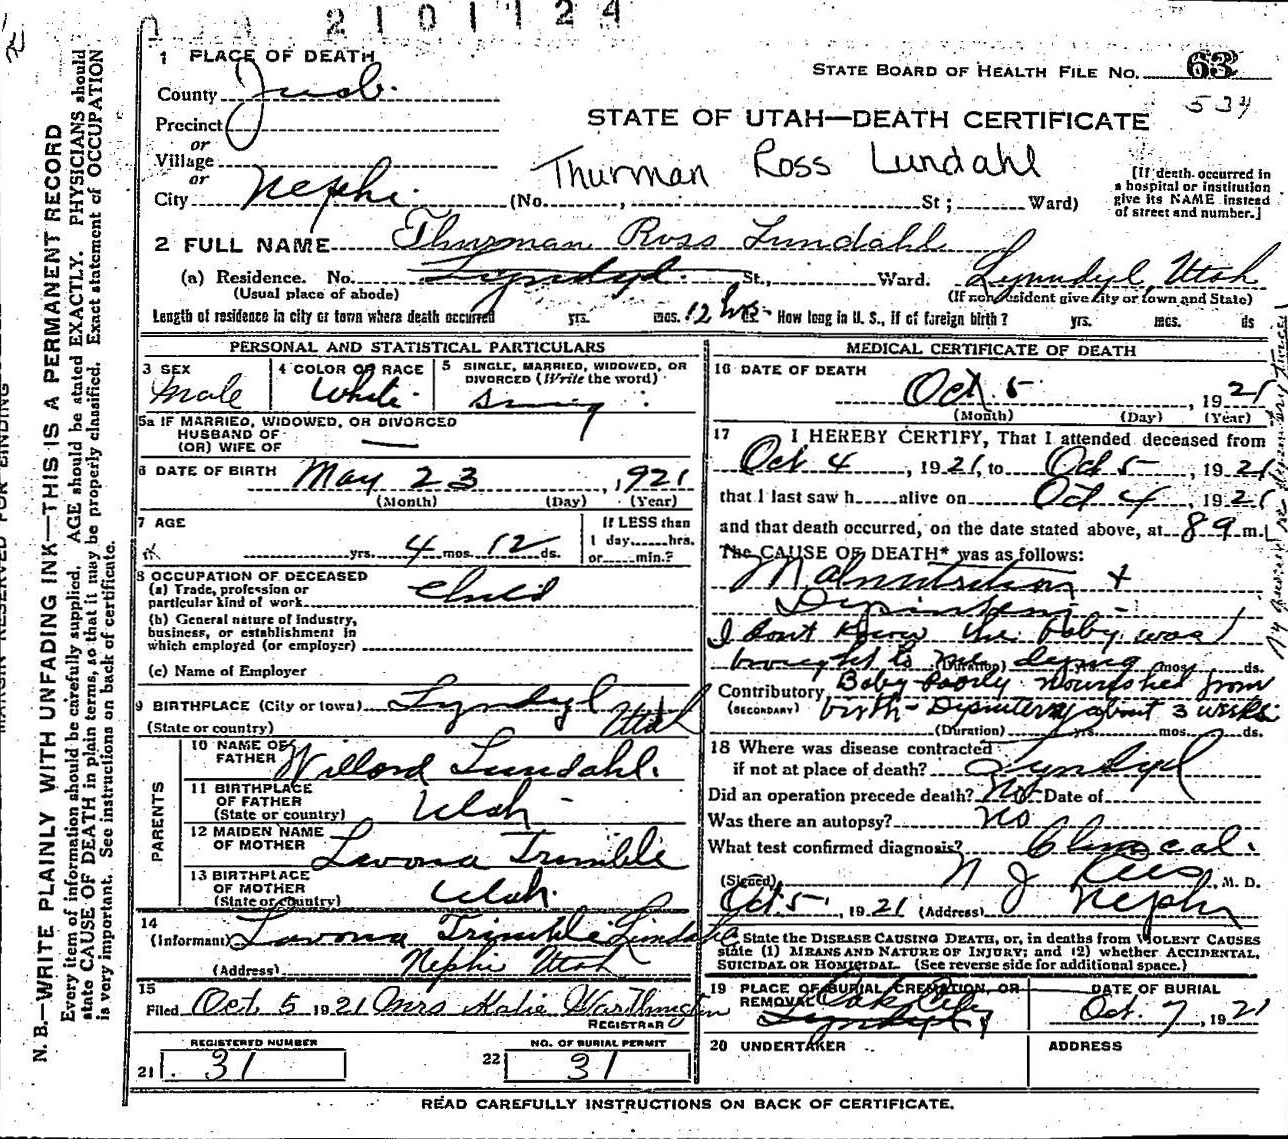 2101124
1 PLACE OF DEATH
STATE BOARD OF HEALTH FILE NO. 63
534
County Juab.
Precinct
or
Village
or
City Nephi.
STATE OF UTAH—DEATH CERTIFICATE
Thurman Ross Lundahl
(No. , St ; Ward)
[If death occurred in
a hospital or institution
give its NAME instead
of street and number.]
2 FULL NAME Thurman Ross Lundahl
(a) Residence. No. Lyndyl. St., Ward. Lynndyl, Utah
(Usual place of abode) (If nonresident give city or town and State)
Length of residence in city or town where death occurred yrs. mos. 12 hrs. How long in U. S., if of foreign birth? yrs. mos. ds
PERSONAL AND STATISTICAL PARTICULARS
3 SEX Male
4 COLOR OR RACE White.
5 SINGLE, MARRIED, WIDOWED, OR
DIVORCED (Write the word)
5a IF MARRIED, WIDOWED, OR DIVORCED
HUSBAND OF
(OR) WIFE OF —
6 DATE OF BIRTH May 23, 1921
(Month) (Day) (Year)
7 AGE
yrs. 4 mos. 12 ds.
If LESS than
1 day, hrs.
or min.?
8 OCCUPATION OF DECEASED
(a) Trade, profession or
particular kind of work Child
(b) General nature of industry,
business, or establishment in
which employed (or employer)
(c) Name of Employer
9 BIRTHPLACE (City or town) Lyndyl
(State or country) Utah
PARENTS
10 NAME OF
FATHER Willard Lundahl.
11 BIRTHPLACE
OF FATHER
(State or country) Utah
12 MAIDEN NAME
OF MOTHER Lavona Trimble
13 BIRTHPLACE
OF MOTHER
(State or country) Utah.
14
(Informant) Lavona Trimble Lundahl
(Address) Nephi Utah
15
Filed Oct 5 1921 Mrs Katie Warthington
REGISTRAR
REGISTERED NUMBER
21 31
NO. OF BURIAL PERMIT
22 31
MEDICAL CERTIFICATE OF DEATH
16 DATE OF DEATH
Oct 5, 1921
(Month) (Day) (Year)
17 I HEREBY CERTIFY, That I attended deceased from
Oct 4, 1921, to Oct 5, 1921
that I last saw h alive on Oct 4, 1921
and that death occurred, on the date stated above, at 89 m.
The CAUSE OF DEATH* was as follows:
Malnutrition +
I dont know the baby was
brought to me dying
(Duration) mos. ds.
Contributory Baby Poorly nourished from
(SECONDARY) birth - about 3 weeks
(Duration) yrs. mos. ds.
18 Where was disease contracted
if not at place of death? Lyndyl
Did an operation precede death? No Date of
Was there an autopsy? No
What test confirmed diagnosis? Clinical.
(Signed) N J Rees, M. D.
Oct 5, 1921 (Address) Nephi
State the DISEASE CAUSING DEATH, or, in deaths from VIOLENT CAUSES
state (1) MEANS AND NATURE OF INJURY; and (2) whether ACCIDENTAL,
SUICIDAL OR HOMICIDAL. (See reverse side for additional space.)
19 PLACE OF BURIAL, CREMATION, OR
REMOVAL Oak City
Lyndyl
DATE OF BURIAL
Oct. 7, 1921
20 UNDERTAKER
ADDRESS
READ CAREFULLY INSTRUCTIONS ON BACK OF CERTIFICATE.
MARGIN RESERVED FOR BINDING
N. B.—WRITE PLAINLY WITH UNFADING INK—THIS IS A PERMANENT RECORD
Every item of information should be carefully supplied. AGE should be stated EXACTLY. PHYSICIANS should
state CAUSE OF DEATH in plain terms, so that it may be properly classified. Exact statement of OCCUPATION
is very important. See instructions on back of certificate.